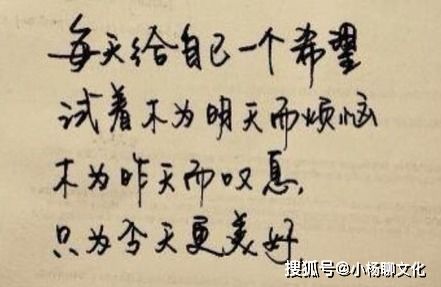 每天给自己一个希望
试着不为明天而烦恼
不为昨天而叹息,
只为今天更美好
搜狐号@小杨聊文化